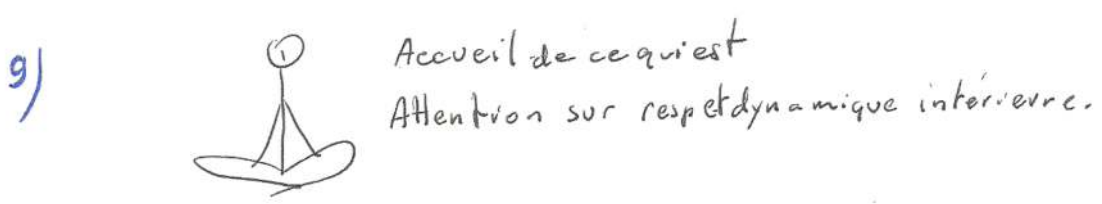 9)
Accueil de ce qui est
Attention sur resp et dynamique intérieure.